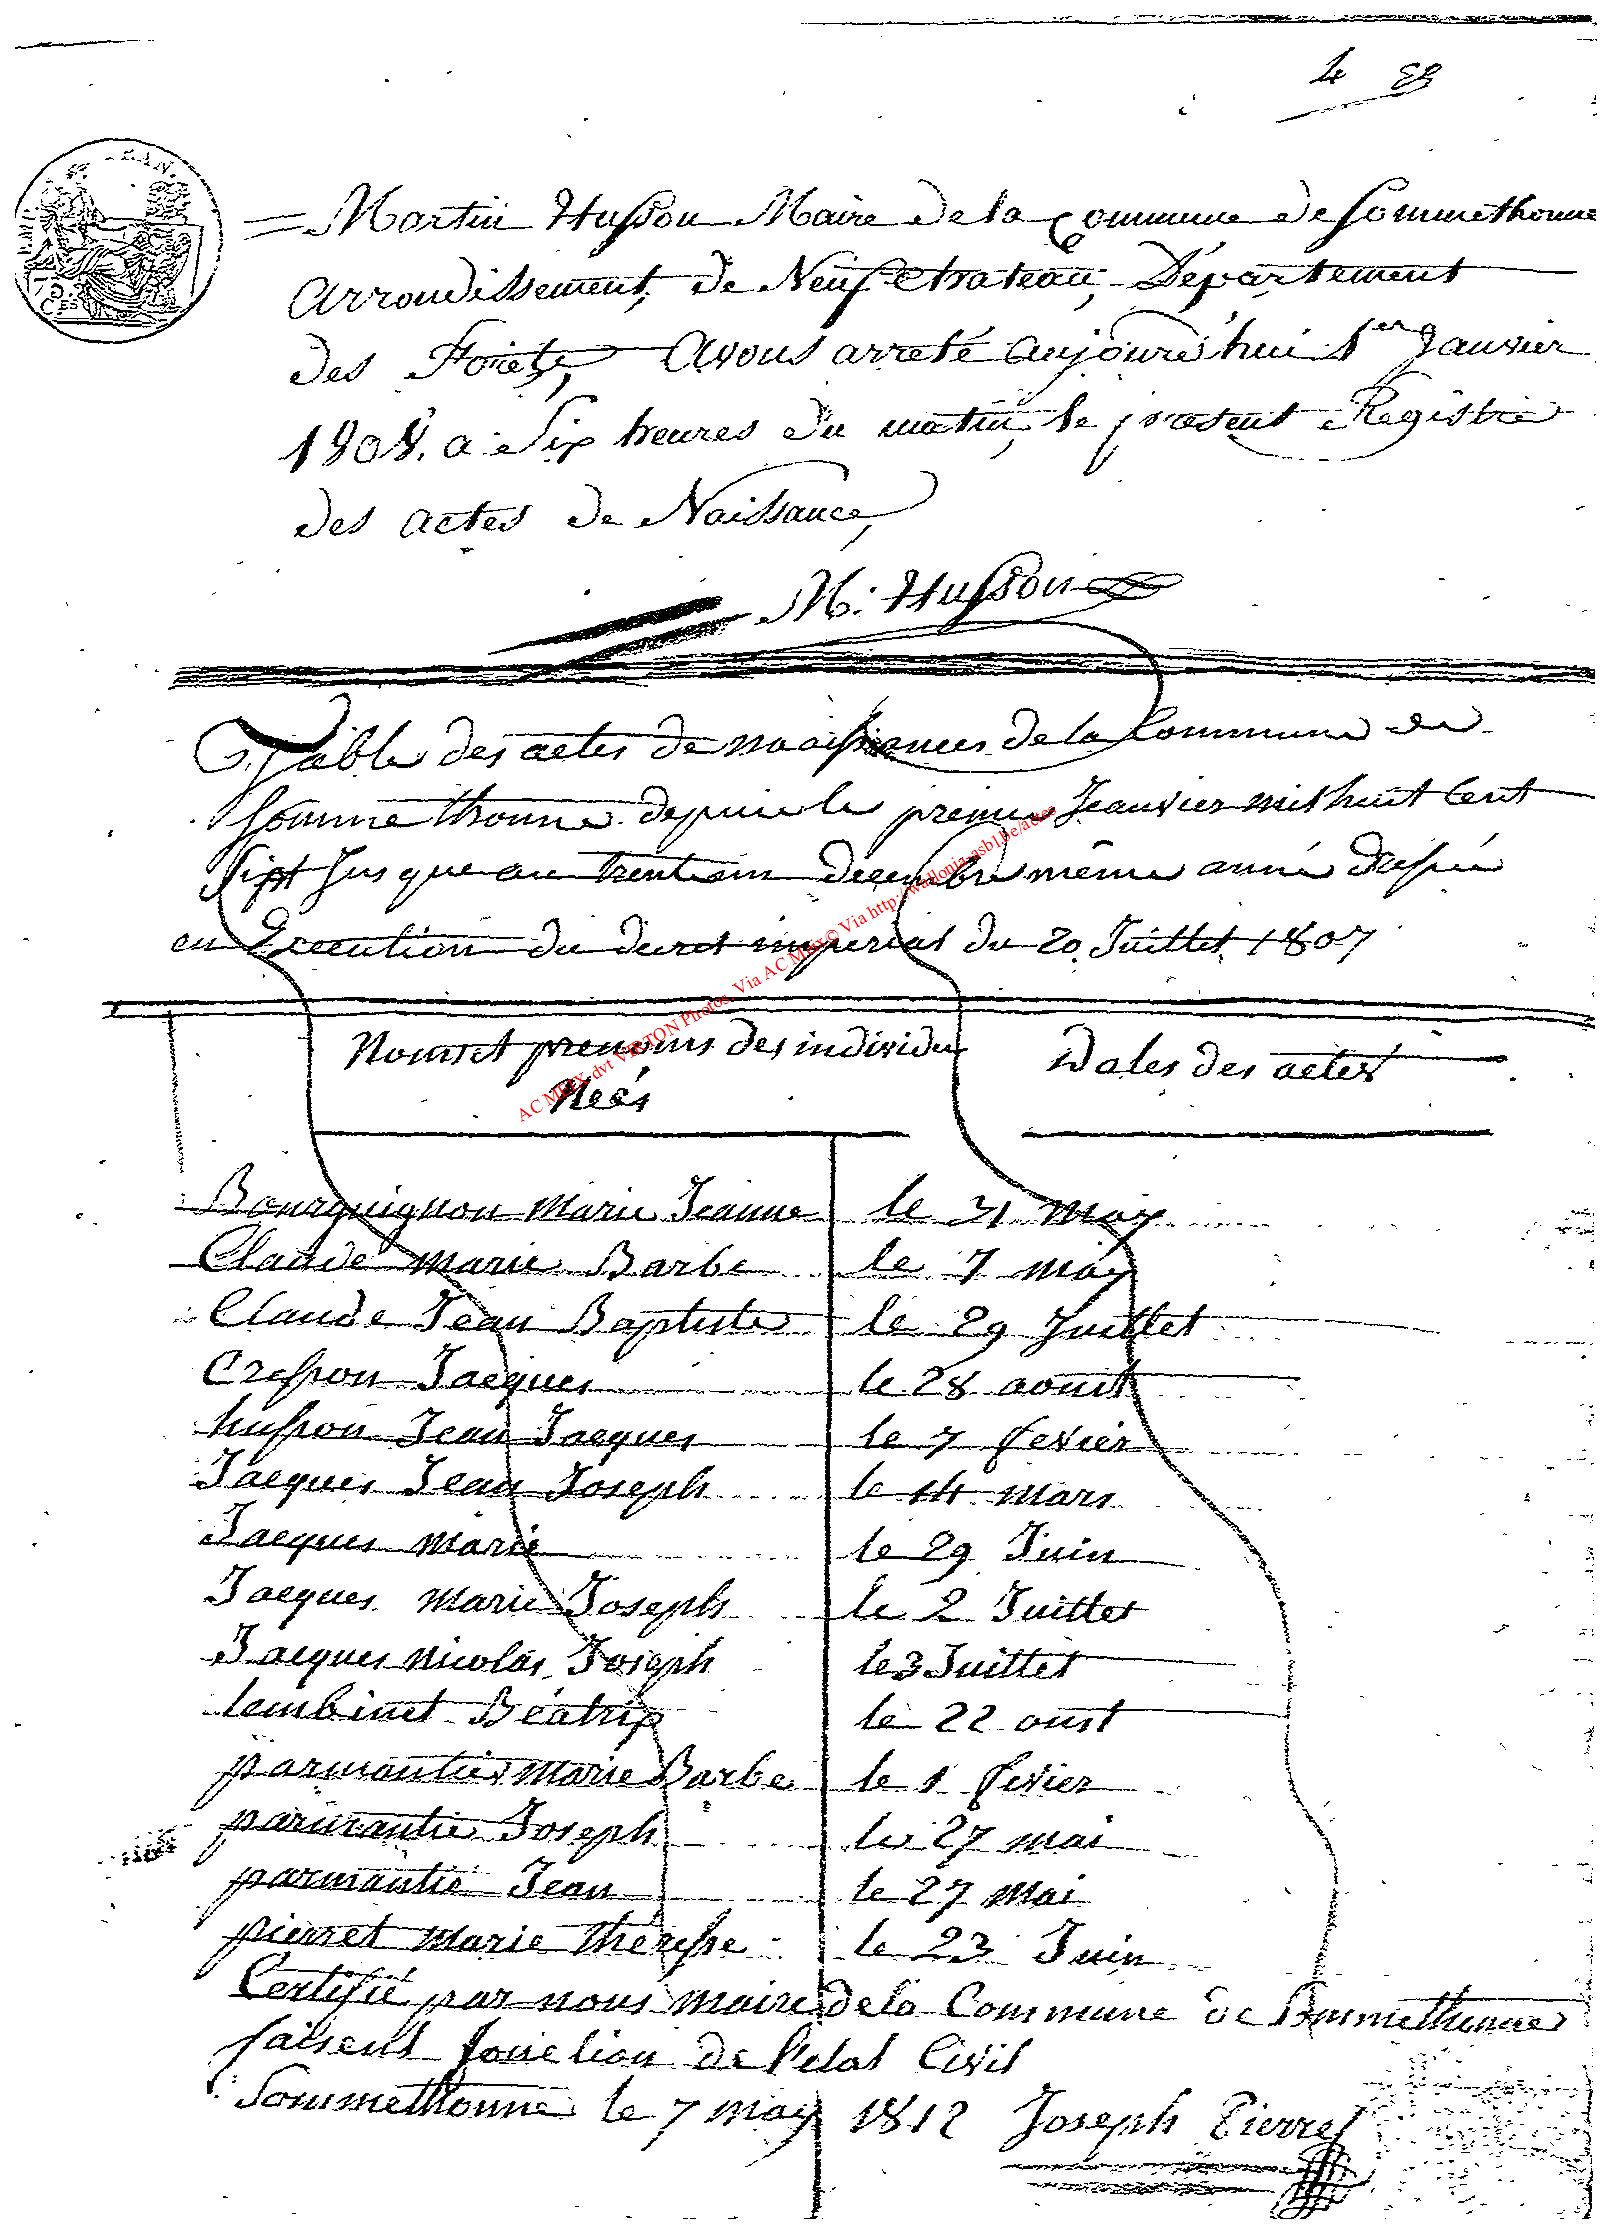 4 88
Martin Husson Maire de la Commune de Sommethonne
arrondissement, de Neufchateau, Département
des Foréts, avons arreté aujourd'hui 1er Janvier
1808. a Six heures du matin, le present Registre
des actes de Naissance,
M: Husson
Table des actes de naissances de la Commune de
Sommethonne depuis le premier Jeanvier mil huit Cent
sept Jusque au trente un decembre même année
en Execution du decret imperial du 20 Juillet 1807
Noms et prenoms des individus
Neés
Dates des actes
Bourguignon Marie Jeanne le 31 may
Claude Marie Barbe le 7 may
Claude Jean Baptiste le 29 Juillet
Cresson Jacques le 28 aoust
husson Jean Jacques le 7 fevier
Jacques Jean Joseph le 14 mars
Jacques Marie le 29 Juin
Jacques Marie Joseph le 2 Juillet
Jacques Nicolas Joseph le 3 Juillet
lembinet Béatrix le 22 oust
parmantier Marie Barbe le 1 fevier
parmantie Joseph le 27 mai
parmantie Jean le 27 Mai
pierret Marie théresse le 23 Juin
Certifié par nous maire de la Commune de Sommethonne
faisent fonction de l'etat Civil
Sommethonne le 7 may 1812 Joseph Pierret